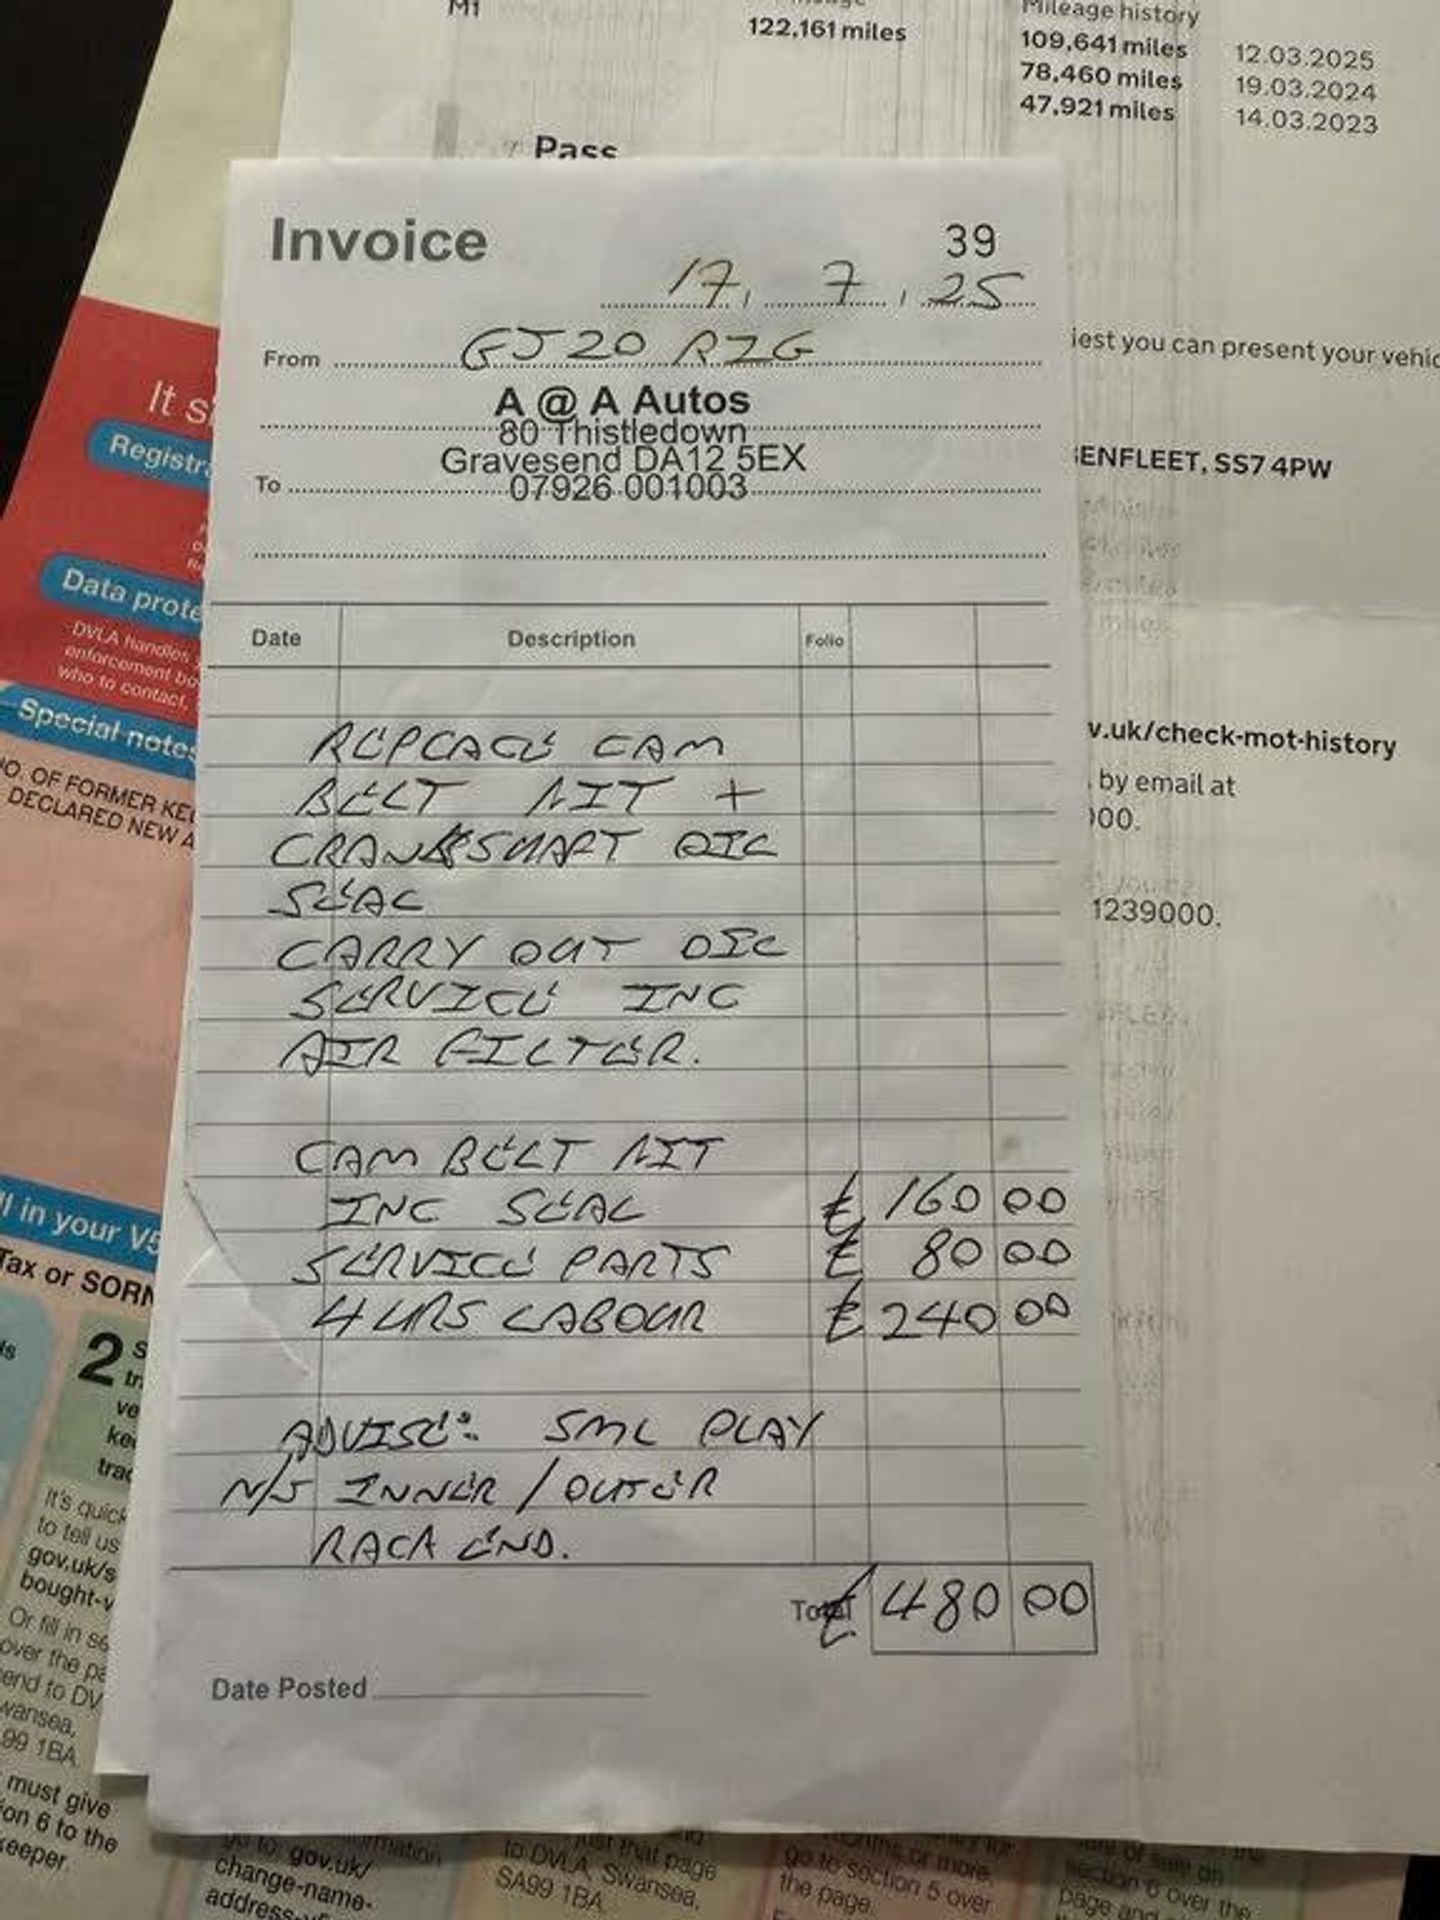 M1
122,161 miles
Mileage history
109,641 miles 12.03.2025
78,460 miles 19.03.2024
47,921 miles 14.03.2023
Pass
Invoice
39
17, 7, 25
From GJ20 RZG
A @ A Autos
80 Thistledown
Gravesend DA12 5EX
To 07926 001003
Date Description Folio
REPLACE CAM
BELT KIT +
CRANKSHAFT OIL
SEAL
CARRY OUT OIL
SERVICE INC
AIR FILTER.
CAM BELT KIT
INC SEAL £ 160 00
SERVICE PARTS £ 80 00
4 HRS LABOUR £ 240 00
ADVISE: SML PLAY
N/S INNER / OUTER
RACK END.
Total £ 480 00
Date Posted
iest you can present your vehic
ENFLEET, SS7 4PW
v.uk/check-mot-history
by email at
000.
1239000.
It s
Registr
Data prote
DVLA handles
enforcement bo
who to contact,
Special notes
O. OF FORMER KE
DECLARED NEW A
l in your V5
Tax or SORN
2
It's quick
to tell us
gov.uk/s
bought-v
Or fill in se
over the pa
end to DV
wansea,
99 1BA
must give
ion 6 to the
keeper.
go to: gov.uk/
change-name-
address-v5
ormation
just that page
to DVLA, Swansea,
SA99 1BA
months or more
go to section 5 over
the page.
section 6 over the
page and